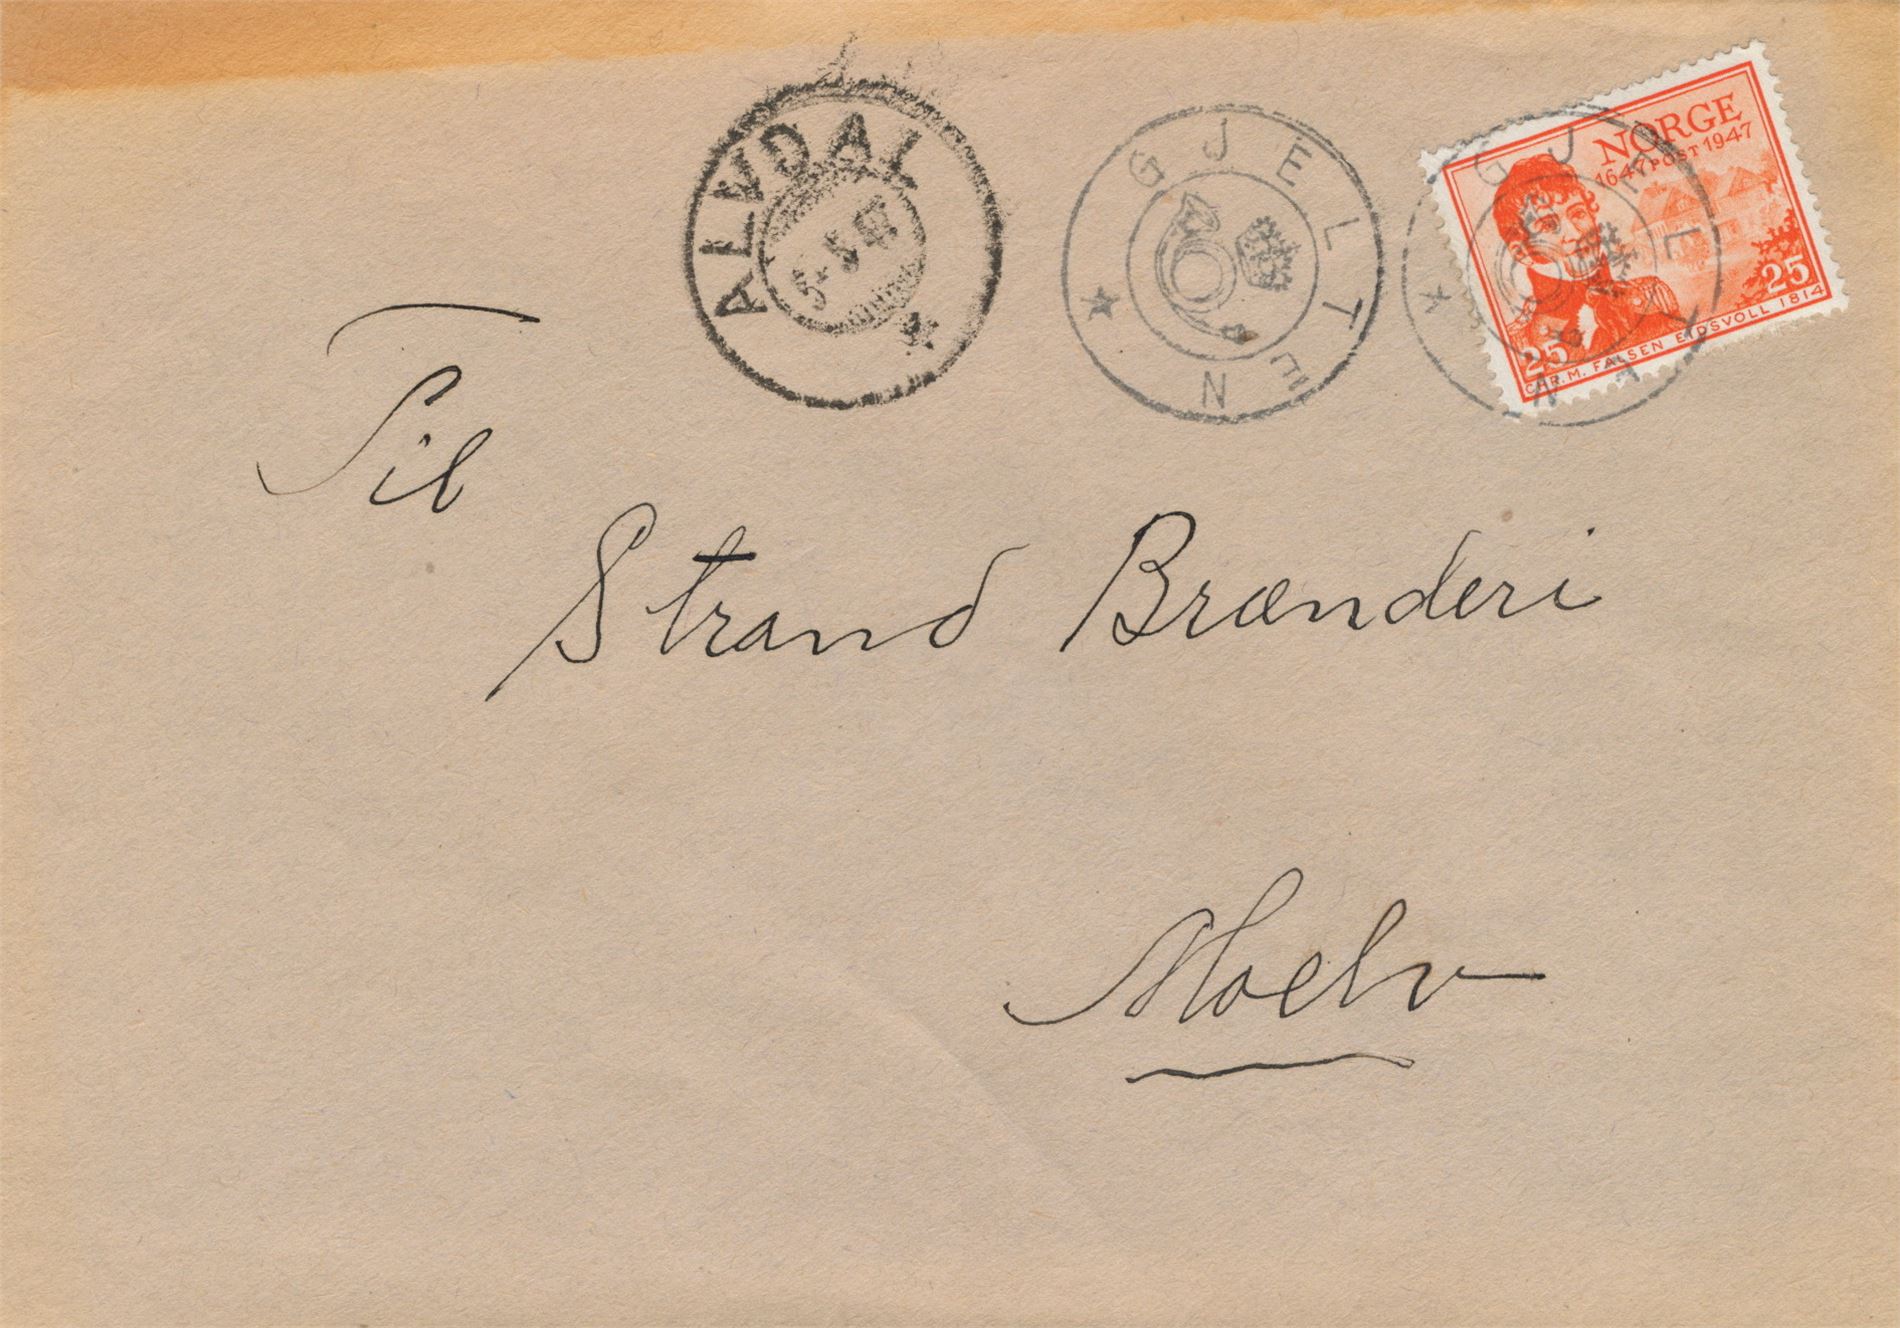 ALVDAL
5-5 47
GJELTEN
GJELTEN
NORGE
1647 POST 1947
25
25
CHR. M. FALSEN EIDSVOLL 1814
Til
Strand Brænderi
Moelv